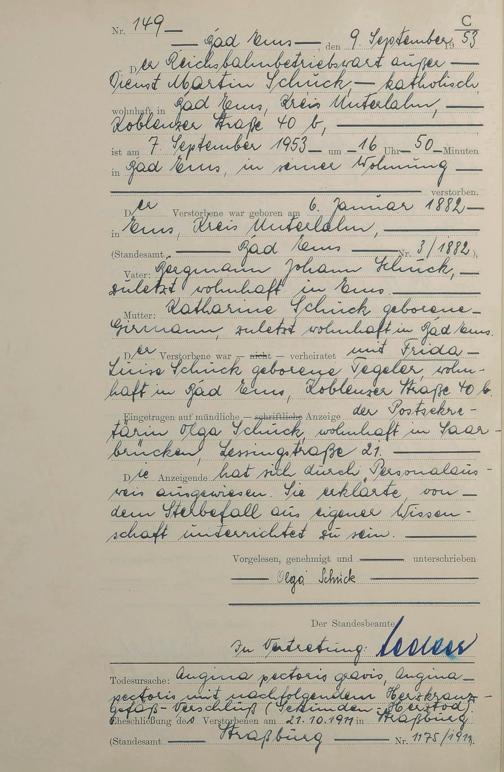 C
Nr. 149
Bad Ems, den 9. September 1953
Der Reichsbahnbetriebswart außer
Dienst Martin Schück, katholisch,
wohnhaft in Bad Ems, Kreis Unterlahn,
Koblenzer Straße 40 b,
ist am 7. September 1953 um 16 Uhr 50 Minuten
in Bad Ems, in seiner Wohnung
verstorben.
Der Verstorbene war geboren am 6. Januar 1882
in Ems, Kreis Unterlahn,
(Standesamt Bad Ems Nr. 3/1882).
Vater: Bergmann Johann Schück,
zuletzt wohnhaft in Ems.
Mutter: Katharine Schück geborene
Girmann, zuletzt wohnhaft in Bad Ems.
Der Verstorbene war — nicht — verheiratet mit Frida
Luise Schück geborene Tegeler, wohn-
haft in Bad Ems, Koblenzer Straße 40 b.
Eingetragen auf mündliche — schriftliche Anzeige der Postsekre-
tärin Olga Schück, wohnhaft in Saar-
brücken, Lessingstraße 21.
Die Anzeigende hat sich durch Personalaus-
weis ausgewiesen. Sie erklärte, von
dem Sterbefall aus eigener Wissen-
schaft unterrichtet zu sein.
Vorgelesen, genehmigt und unterschrieben
Olga Schück
Der Standesbeamte
In Vertretung:
Todesursache: Angina pectoris gravis, Angina
pectoris mit nachfolgendem Herzkranz-
gefäß-Verschluß Sekunden-Herztod.
Eheschließung des Verstorbenen am 21.10.1911 in Straßburg
(Standesamt Straßburg Nr. 1175/1911)